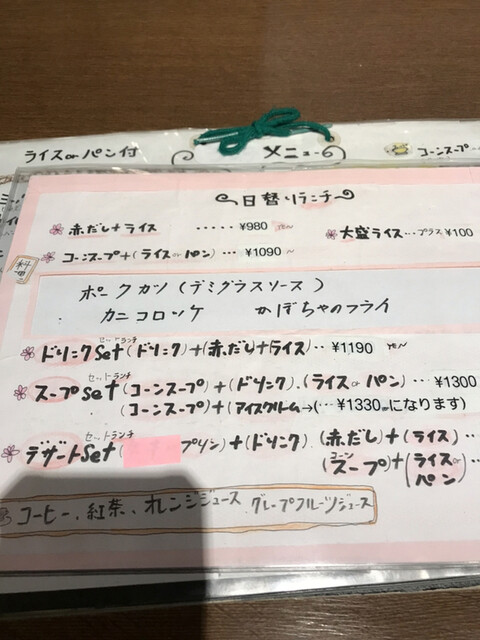 ライスorパン付
メニュー6
コーンスープ
日替りランチ
赤だし+ライス ・・・・・ ¥980
大盛ライス…プラス¥100
コーンスープ+(ライスorパン)… ¥1090~
ポークカツ(デミグラスソース)
カニコロッケ かぼちゃのフライ
セットランチ
ドリンクSet(ドリンク)+(赤だし+ライス)‥ ¥1190
セットランチ
スープSet(コーンスープ)+(ドリンク).(ライスorパン)… ¥1300
(コーンスープ)+(アイスクリーム→(… ¥1330になります)
セットランチ
デザートSet( プリン)+(ドリンク)(赤だし)+(ライス)…
(コーンスープ)+(ライスorパン)…
コーヒー、紅茶、オレンジジュース グレープフルーツジュース